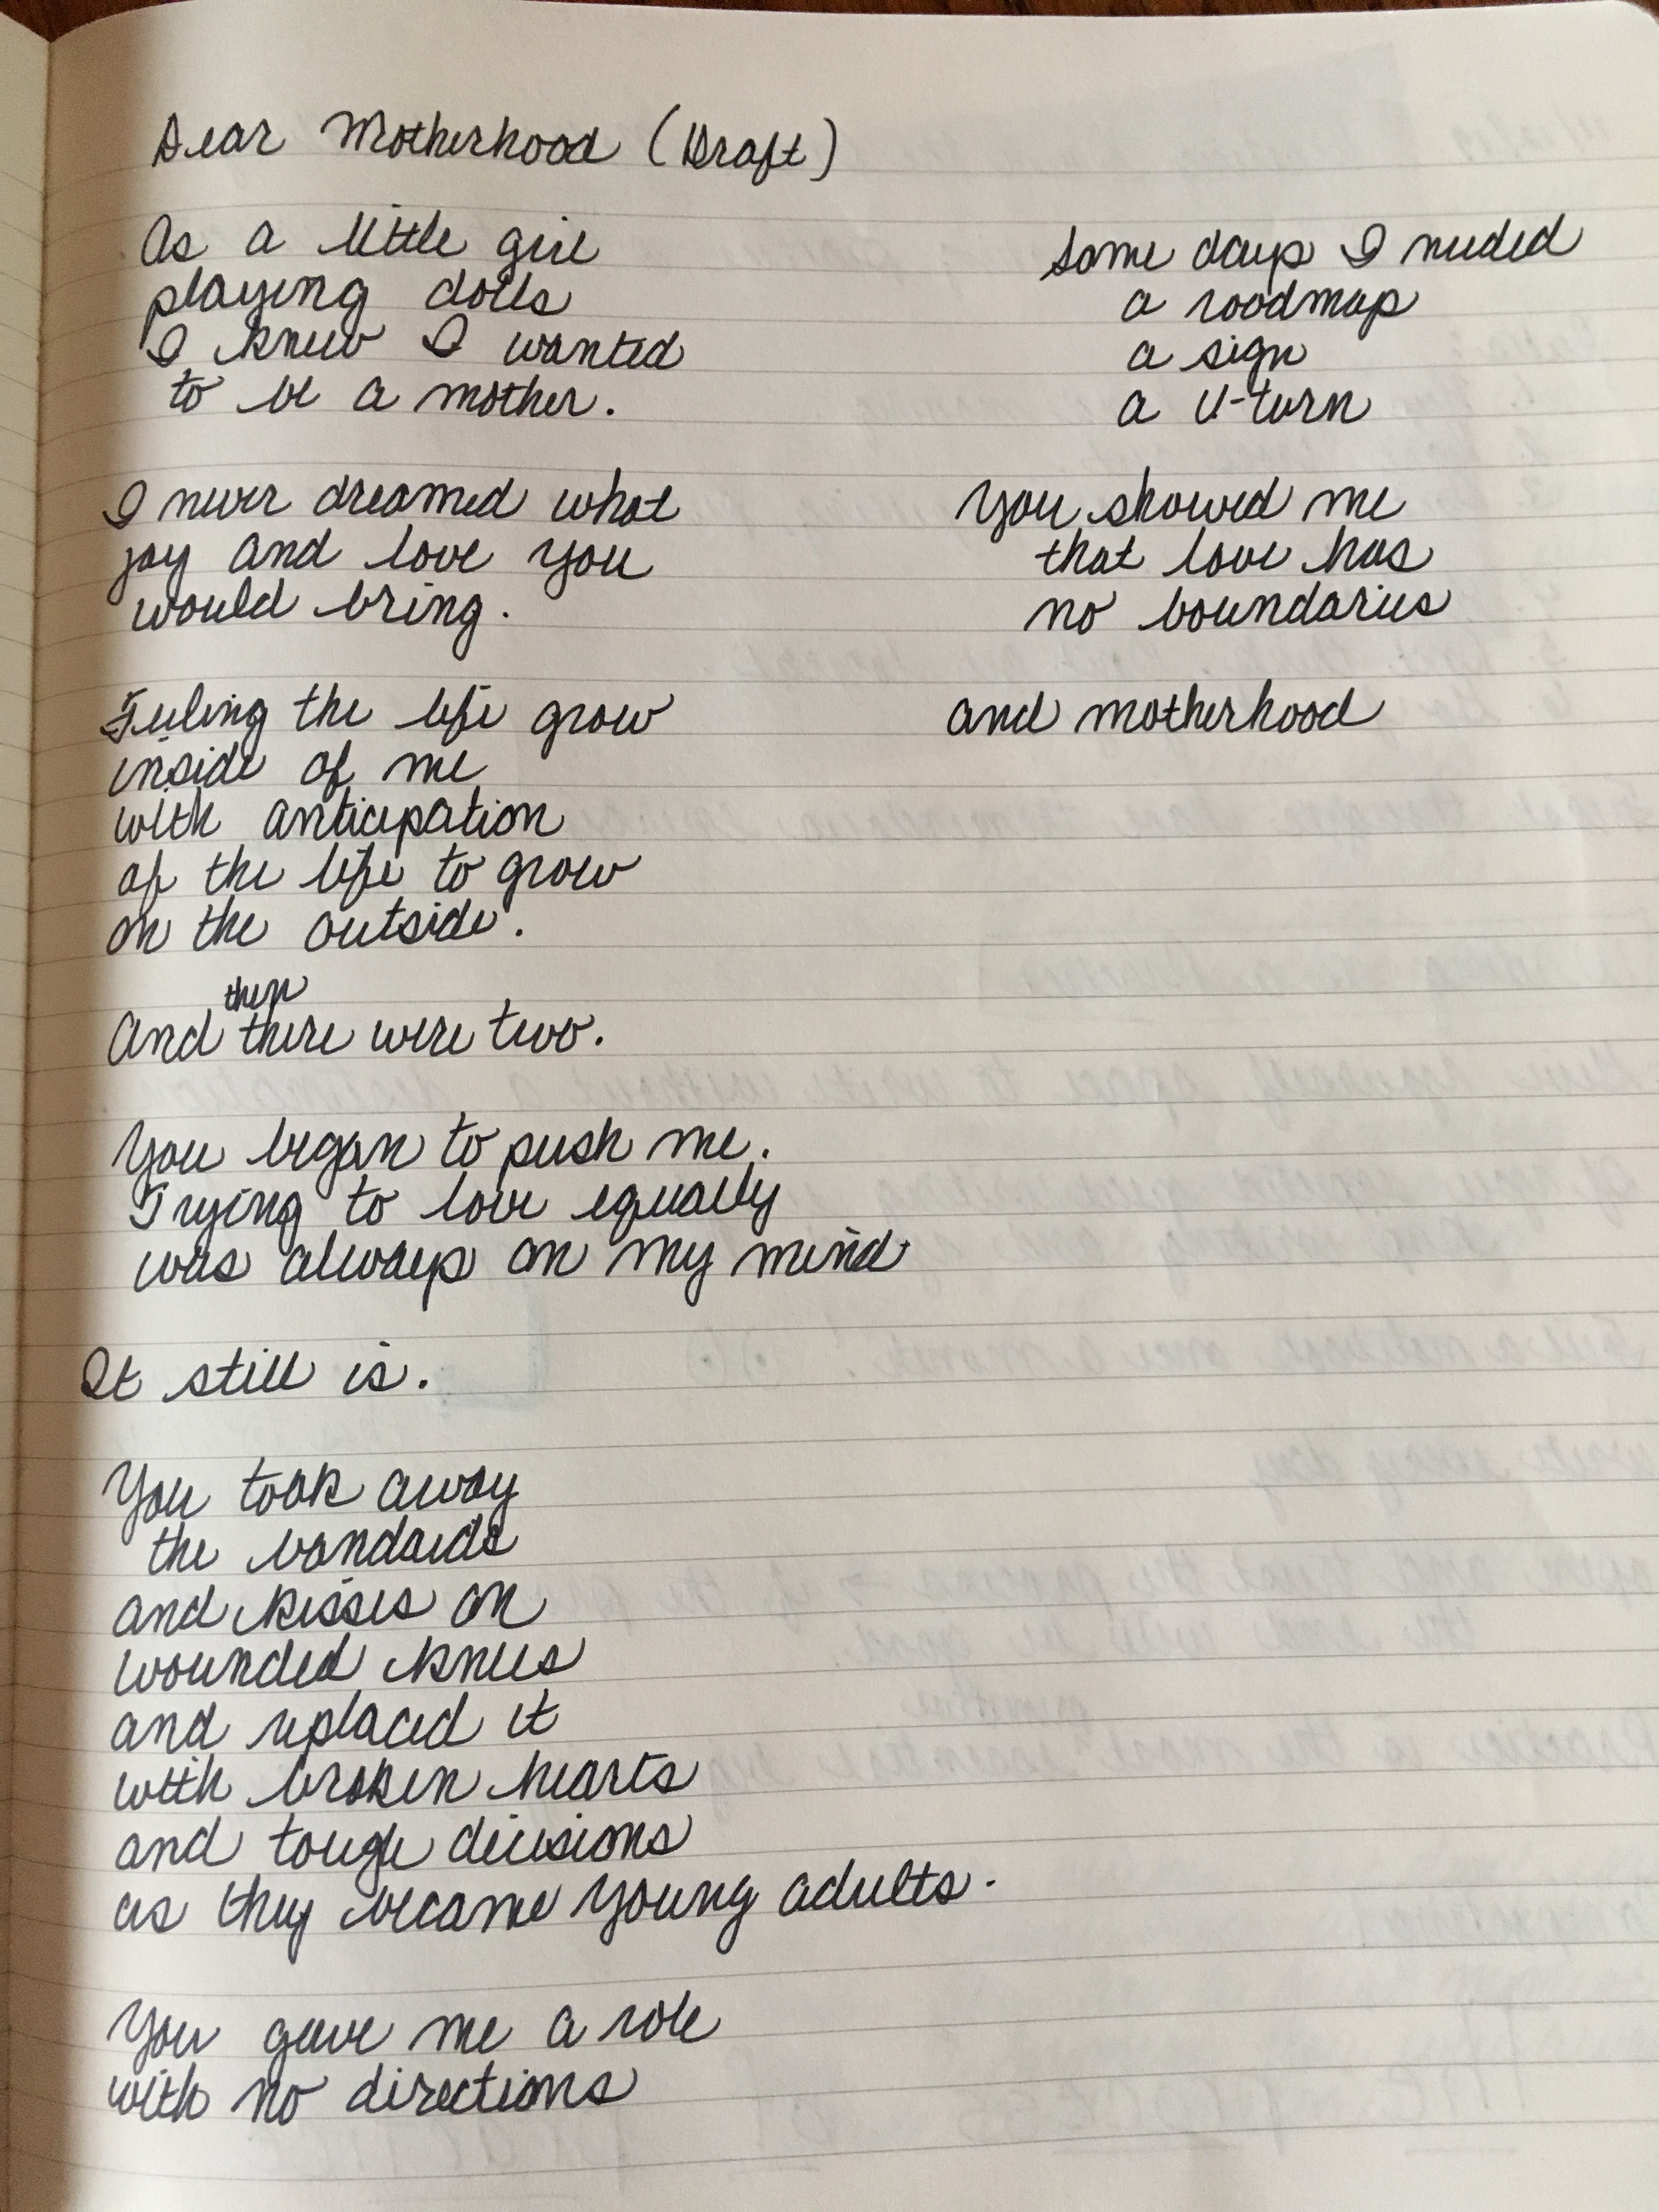 Dear Motherhood (Draft)
As a little girl
playing dolls
I knew I wanted
to be a mother.
I never dreamed what
joy and love you
would bring.
Feeling the life grow
inside of me
with anticipation
of the life to grow
on the outside.
then
And there were two.
You began to push me.
Trying to love equally
was always on my mind
It still is.
You took away
the bandaids
and kisses on
wounded knees
and replaced it
with broken hearts
and tough decisions
as they became young adults.
You gave me a role
with no directions
Some days I needed
a roadmap
a sign
a U-turn
You showed me
that love has
no boundaries
and motherhood